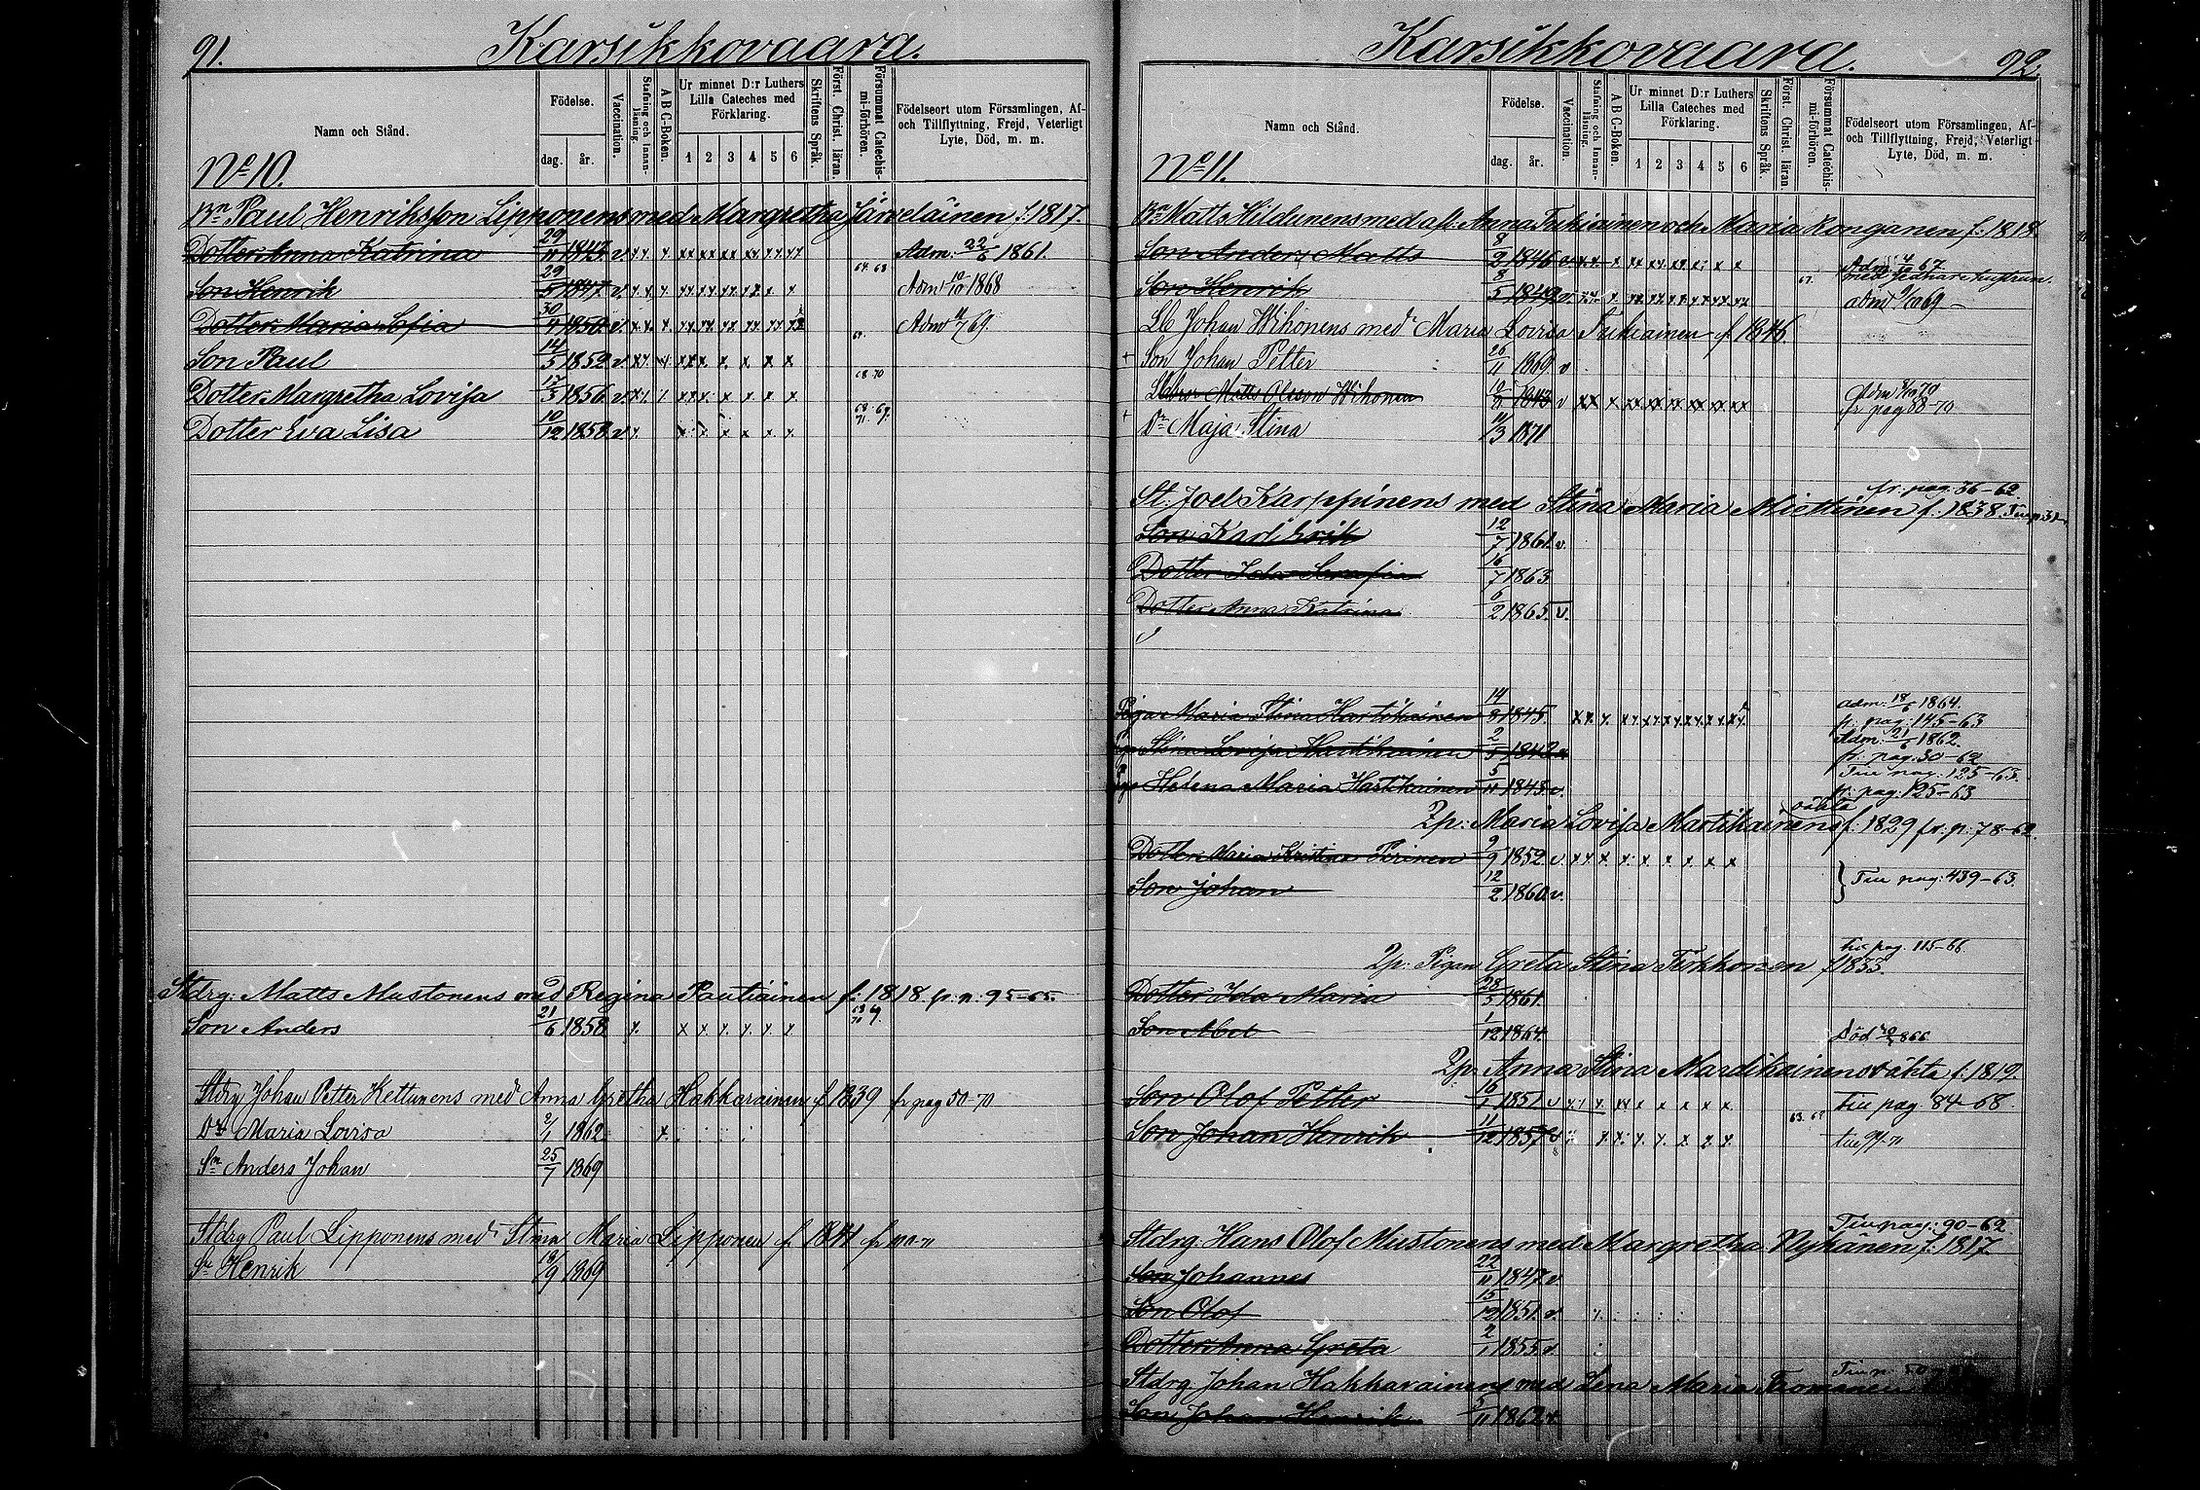 91.
Karsikkovaara.
Namn och Stånd.
Födelse.
dag.
år.
Vaccination.
Stafning och Innanläsning.
A B C-Boken.
Ur minnet D:r Luthers Lilla Cateches med Förklaring.
1 2 3 4 5 6
Skriftens Språk.
Först. Christ. läran.
Försummat Catechismi-förhören.
Födelseort utom Församlingen, Af- och Tillflyttning, Frejd, Veterligt Lyte, Död, m. m.
No 10.
Bn Paul Henriksson Lipponens med Margretha Järveläinen f. 1817.
Dotter Anna Katrina 29/11 1843 v. Adm: 22/6 1861.
Son Henrik 29/5 1847 v. Adm 10/10 1868
Dotter Maria Sofia 30/9 1850 v. Adm 69
Son Paul 14/5 1852 v.
Dotter Margretha Lovisa 17/3 1856 v. 68 70
Dotter Eva Lisa 10/12 1858 v. 68. 69. 71.
Stdrg: Matts Mustonens med Regina Pautiainen f: 1818 fr. p: 95-65.
Son Anders 21/6 1858
Stdrg Johan Petter Kettunens med Anna Gretha Hakkarainen f 1839 fr pag 50-70
Dr Maria Lovisa 2/1 1862
Sn Anders Johan 25/7 1869
Stdrg Paul Lipponens med Stina Maria Lipponen f 1841
Sn Henrik 18/9 1869
Karsikkovaara.
92.
Namn och Stånd.
Födelse.
dag.
år.
Vaccination.
Stafning och Innanläsning.
A B C-Boken.
Ur minnet D:r Luthers Lilla Cateches med Förklaring.
1 2 3 4 5 6
Skriftens Språk.
Först. Christ. läran.
Försummat Catechismi-förhören.
Födelseort utom Församlingen, Af- och Tillflyttning, Frejd, Veterligt Lyte, Död, m. m.
No 11.
Bn Matts Hildunens med afl. Anna Tukiainen och Maria Ronganen f: 1818.
Son Anders Matts 8/2 1846 Adm 67.
Son Henrik 8/5 1849 v. 67. adm 69
Lb Johan Wihonens med Maria Lovisa Tukiainen f 1846.
Son Johan Petter 26/11 1869 v
Matts Olsson Wihonen 1843 v Adm 70 fr pag 58-70
Dr Maja Stina 14/3 1871
fr: pag: 36-62.
St: Joel Karppinens med Stina Maria Miettinen f: 1838.
Son Karl Erik 12/7 1861 v.
Dotter Ida Serafia 16/7 1863
Dotter Anna Katrina 6/2 1865 v.
Piga Maria Stina Martikainen 14/8 1845. adm: 18/6 1864. fr: pag: 145-63
Stina Lovisa Martikainen 2/5 1842 Adm: 21/6 1862. fr: pag: 50-62 Till pag: 125-63.
Helena Maria Martikainen 5/11 1843 v. fr: pag: 125-63
2p: Maria Lovisa Martikainens oäkta f: 1829 fr. p: 78-62
Dotter Maria Kristina Tirinen 9/9 1852 v.
Son Johan 12/2 1860 v. } Till pag: 439-63.
Till pag. 115-66
2p: Pigan Greta Stina Tirkkonen f 1833.
Dotter Ida Maria 28/5 1861.
Son Abel 1/12 1864. Död 866
2p: Anna Stina Mardikainens oäkta f. 1819.
Son Olof Petter 16/1 1851 v Till pag: 84-68.
Son Johan Henrik 11/12 1857 v
Till pag: 90-62
Stdrg: Hans Olof Mustonens med Margretha Nykänen f: 1817
Son Johannes 22/11 1847 v.
Son Olof 15/12 1851. v.
Dotter Anna Greta 2/1 1855 v.
Stdrg Johan Hakkarainens med Lena Maria Tiomanen
Son Johan Henrik 5/11 1862 v.